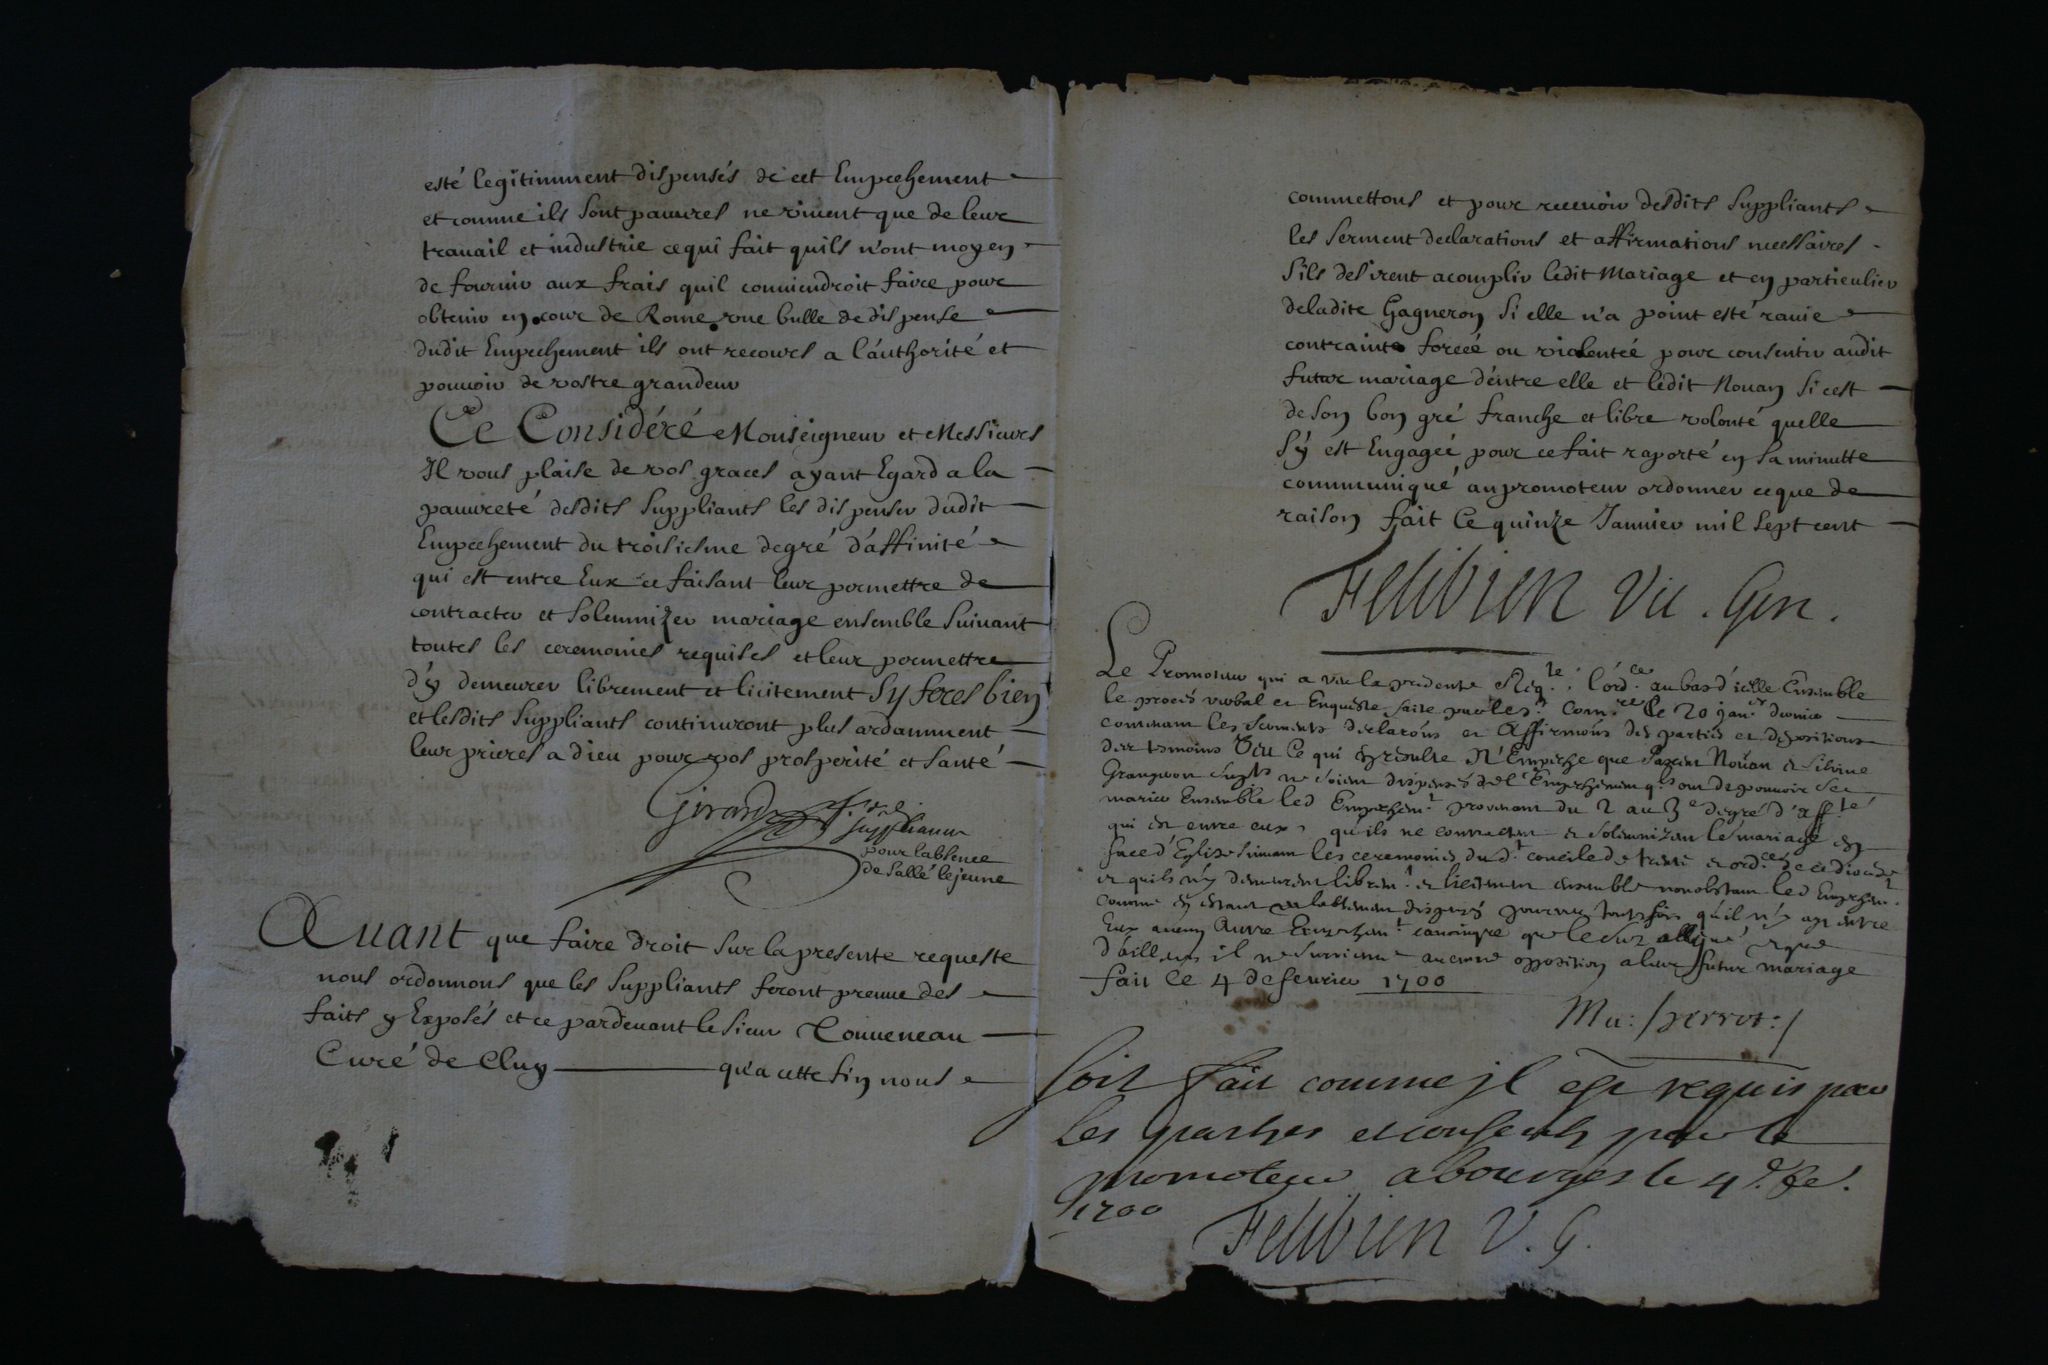 esté legitimment dispensés de cet Empechement
et comme ils sont pauures ne viuent que de leur
trauail et industrie ce qui fait quils n'ont moyen
de fournir aux frais quil conuiendroit faire pour
obtenir en cour de Rome vne bulle de dispense
dudit Empechement ils ont recours a l'authorité et
pouuoir de vostre grandeur
Ce Considéré Monseigneur et Messieurs
Il vous plaise de vos graces ayant Egard a la
pauureté desdits suppliants les dispenser dudit
Empechement du troisiesme degré d'affinité
qui est entre Eux ce faisant leur permettre de
contracter et solemnizer mariage ensemble suiuant
toutes les ceremonies requises et leur permettre
d'y demeurer librement et licitement sy feres bien
et lesdits suppliants continuront plus ardamment
leur prieres a dieu pour vos prosperité et santé
Girard
suppliant
pour labsence
de Sallé le jeune
Auant que faire droit sur la presente requeste
nous ordonnons que les suppliants feront preuue des
faits y Exposés et ce pardeuant le sieur Touueneau
Curé de Cluy qu'a cette fin nous
commettons et pour receuoir desdits suppliants
les serment declarations et affirmations necessaires
sils desirent acomplir ledit Mariage et en particulier
deladite Gagneron si elle n'a point esté rauie
contrainte forcéé ou violentéé pour consentir audit
futur mariage d'entre elle et ledit Nouan si cest
de son bon gré franche et libre volonté quelle
s'y est Engagéé pour ce fait raporté en sa minutte
communiqué au promoteur ordonner ce que de
raison fait Ce quinze Januier mil sept cent
Felibien Vic. Gen.
Le Promoteur qui a veu la presente Req.te l'ord.ce au bas d'icelle Ensemble
le procés verbal et Enqueste faite par les.r Com.re le 20 jan.er dernier
contenant les serments declarãons et Affirmãons des parties et depositions
des tesmoins Veu Ce qui en resulte N'Empesche que Nouan et Silvine
ne soient dispensés de l'Empeschement qls ont de pouuoir se
marier Ensemble led Empeschem.t prouenant du 2 au 3e degré d'aff.té
qui est entre eux, qu'ils ne contractent et solemnizent le mariage en
face d'Eglise suiuant les ceremonies du d.t concile de trente et ord.ces de ce diocese
et quils n'y demeurent librem.t et licitement ensemble nonobstant led Empeschem.t
comme en estant valablement dispensés pourueu toutefois qu'il n'y ayt entre
Eux aucun Autre Empeschem.t canonique que le sus allegué et que
d'ailleurs il ne suruienne aucune opposition a leur futur mariage
fait Ce 4 de feurier 1700
Perrot
soit fait comme jl est requis par
les parties et consenty par le
promoteur a bourges le 4e fe.
1700
Felibien V. G.